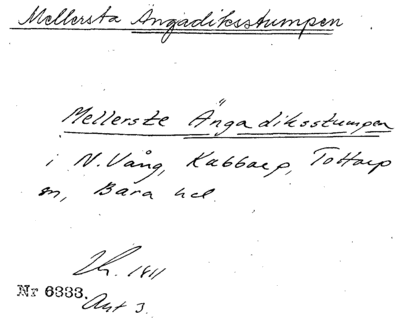 Mellersta Ängadiksstumpen
Mellerste Ängadiksstumpen
i N. Vång, Kabbarp, Tottarp
sn, Bara hd.
Lh. 1811
Nr 6333.
Akt 3.